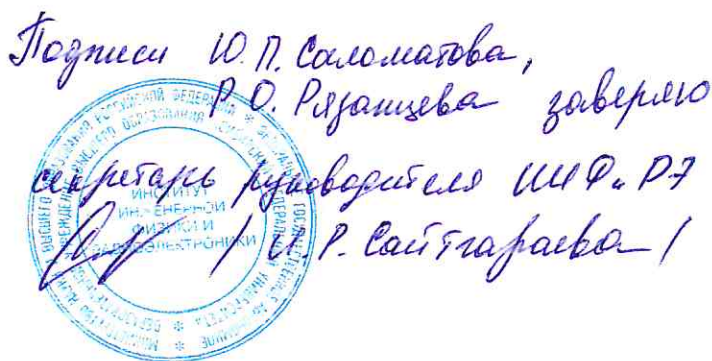 Подписи Ю.П. Саломатова,
Р.О. Рязанцева заверяю
секретарь руководителя ИИФиРЭ
/ И.Р. Сайтгараева /
ИНСТИТУТ
ИНЖЕНЕРНОЙ
ФИЗИКИ И
РАДИОЭЛЕКТРОНИКИ